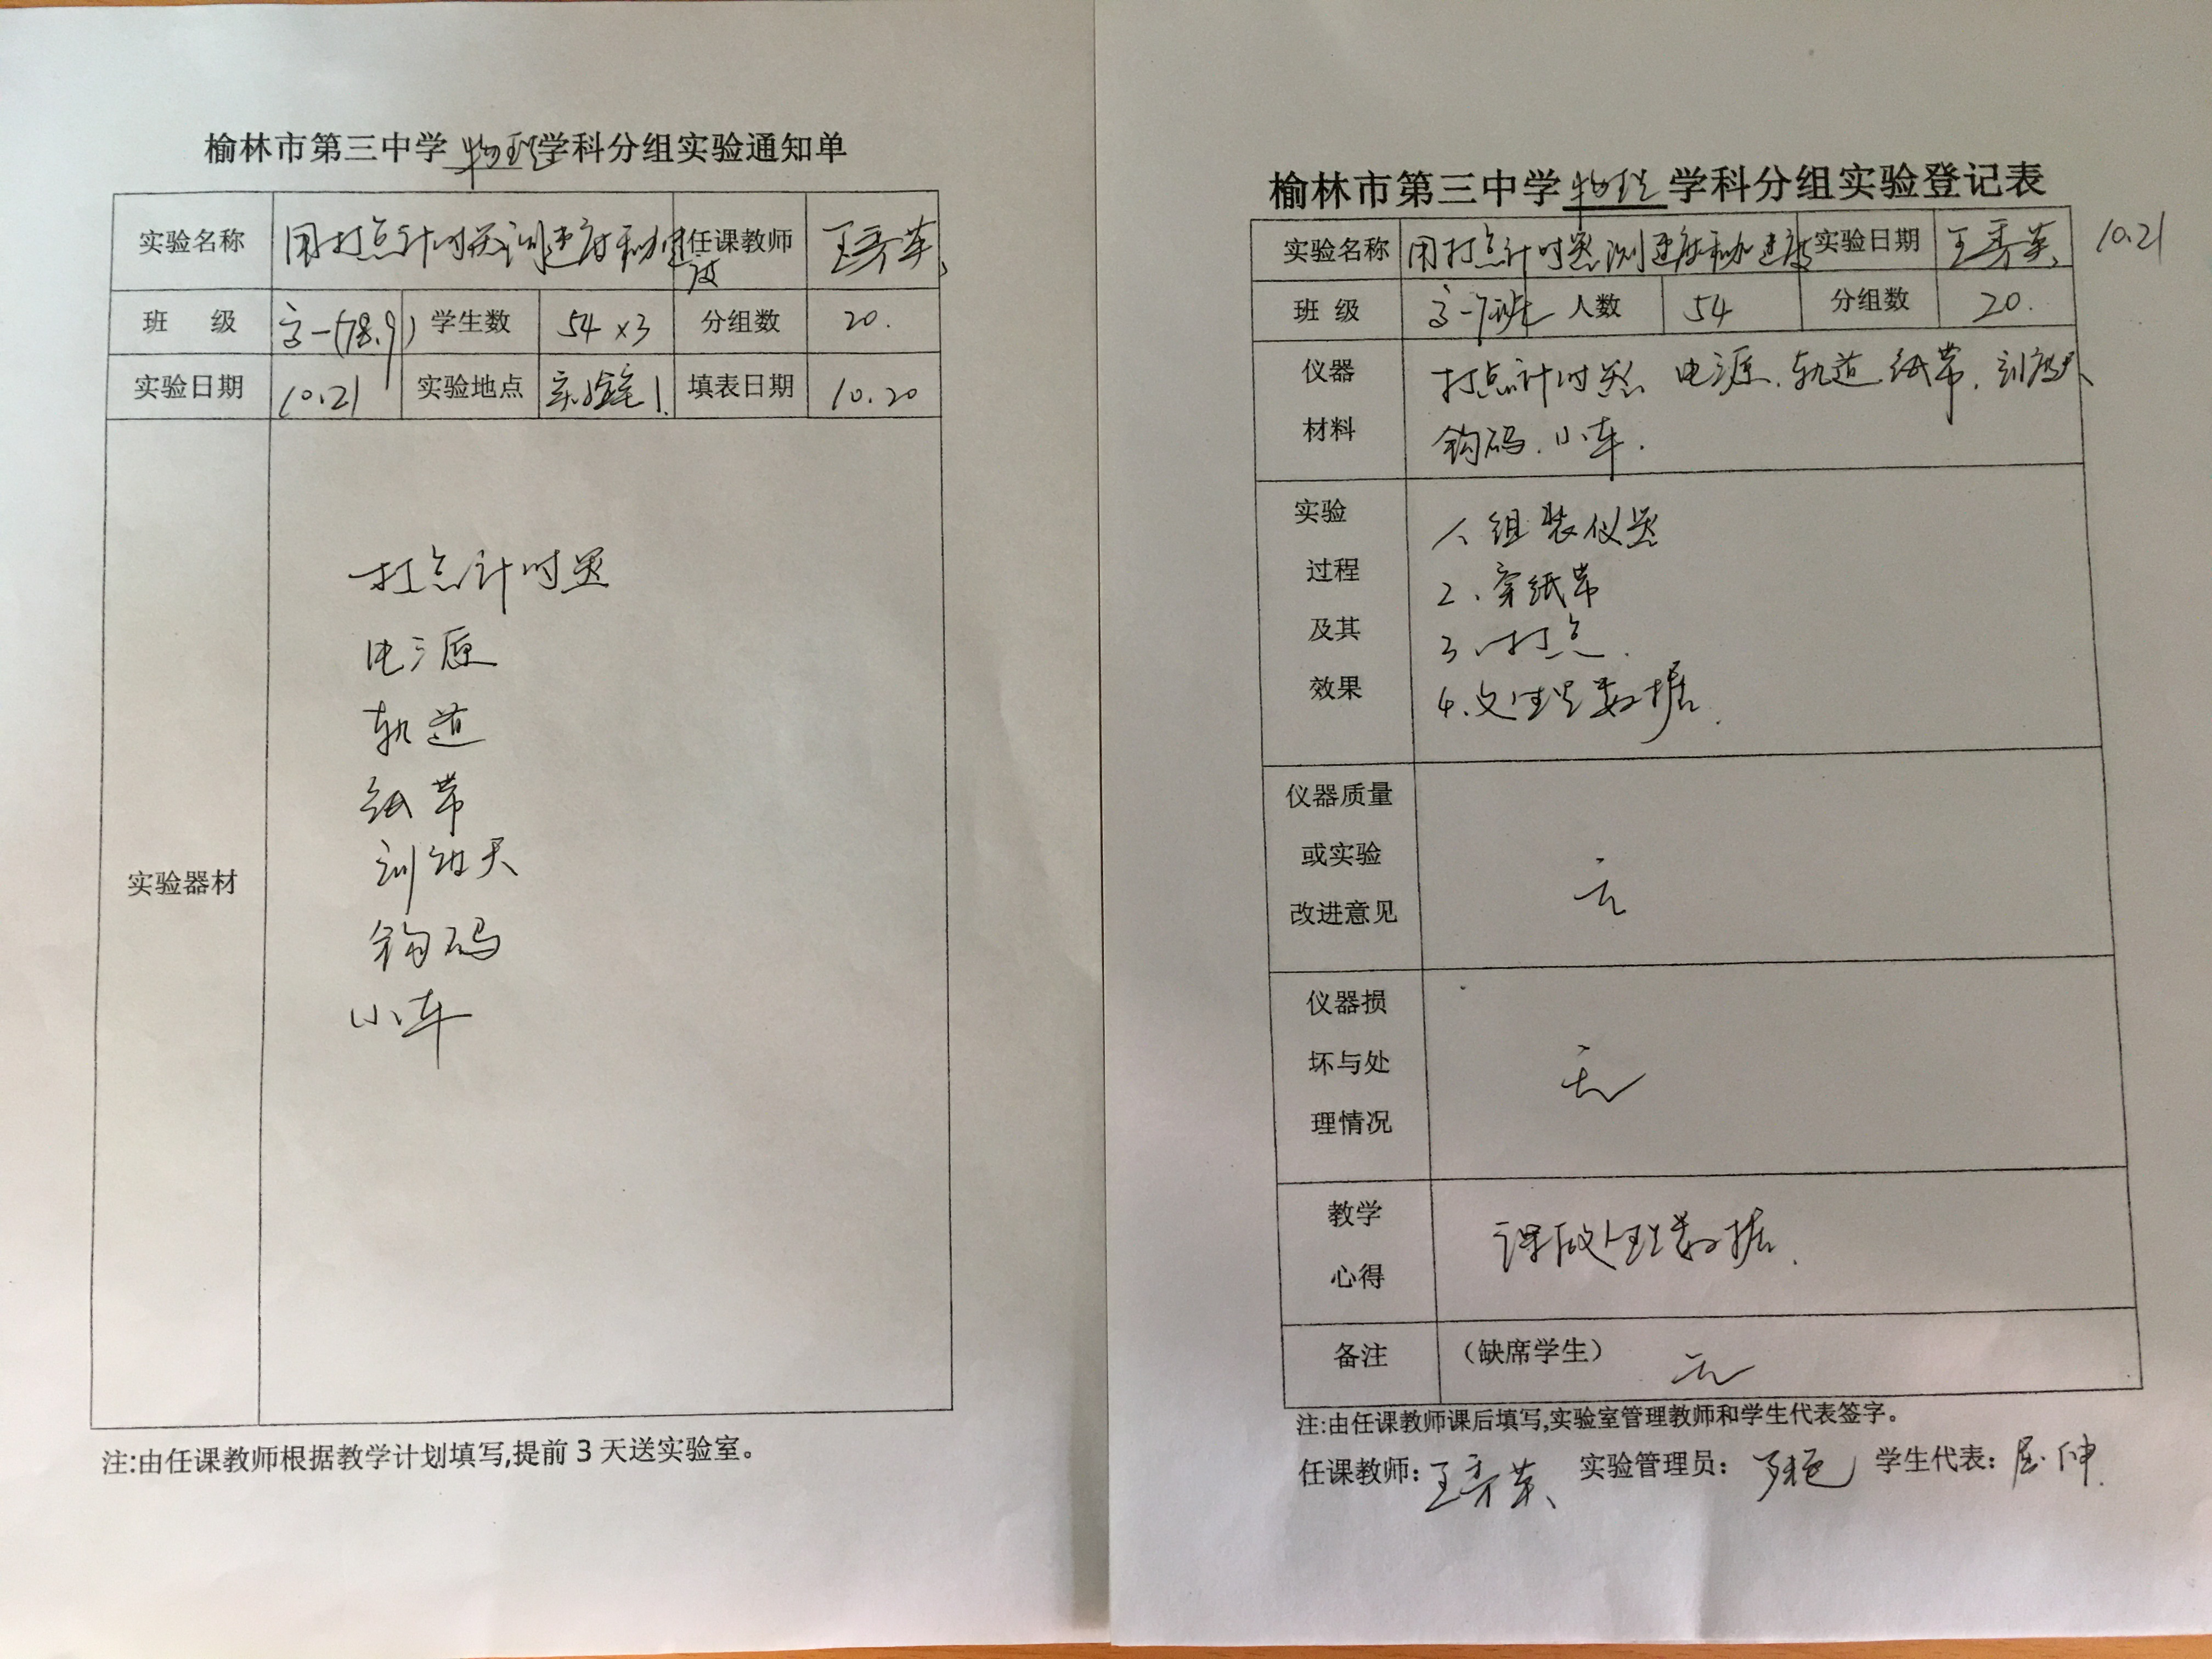 榆林市第三中学物理学科分组实验通知单
实验名称 用打点计时器测速度和加速度 任课教师 王秀英
班 级 高一(7.8.9) 学生数 54×3 分组数 20.
实验日期 10.21 实验地点 实验室1. 填表日期 10.20
实验器材
打点计时器
电源
轨道
纸带
刻度尺
钩码
小车
注:由任课教师根据教学计划填写,提前3天送实验室。
榆林市第三中学物理学科分组实验登记表
实验名称 用打点计时器测速度和加速度 实验日期 王秀英 10.21
班 级 高一7班 人数 54 分组数 20.
仪器
材料
打点计时器 电源、轨道 纸带、刻度尺、
钩码、小车.
实验
过程
及其
效果
1、组装仪器
2、穿纸带
3、打点.
4.处理数据.
仪器质量
或实验
改进意见
无
仪器损
坏与处
理情况
无
教学
心得
课后处理数据.
备注 (缺席学生) 无
注:由任课教师课后填写,实验室管理教师和学生代表签字。
任课教师: 王秀英、 实验管理员: 学生代表: